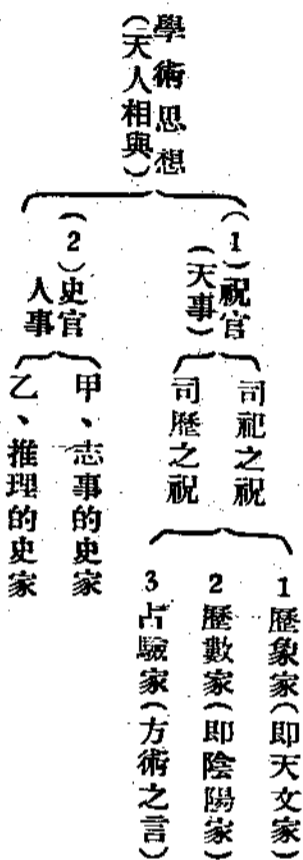 學術思想
(天人相與)
(1)祝官
(天事)
司祀之祝
司歷之祝
1歷象家(即天文家)
2歷數家(即陰陽家)
3占驗家(方術之言)
(2)史官
人事
甲、志事的史家
乙、推理的史家